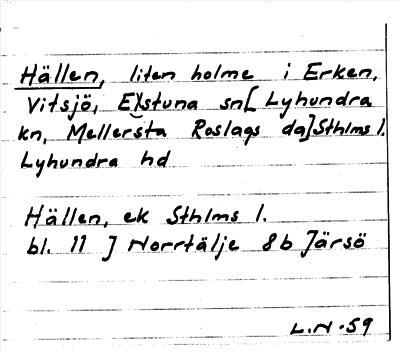 Hällen, liten holme i Erken,
Vitsjö, Estuna sn[Lyhundra
kn, Mellersta Roslags da]Sthlms l.
Lyhundra hd
Hällen, ek Sthlms l.
bl. 11 J Norrtälje 8b Järsö
L.N-59